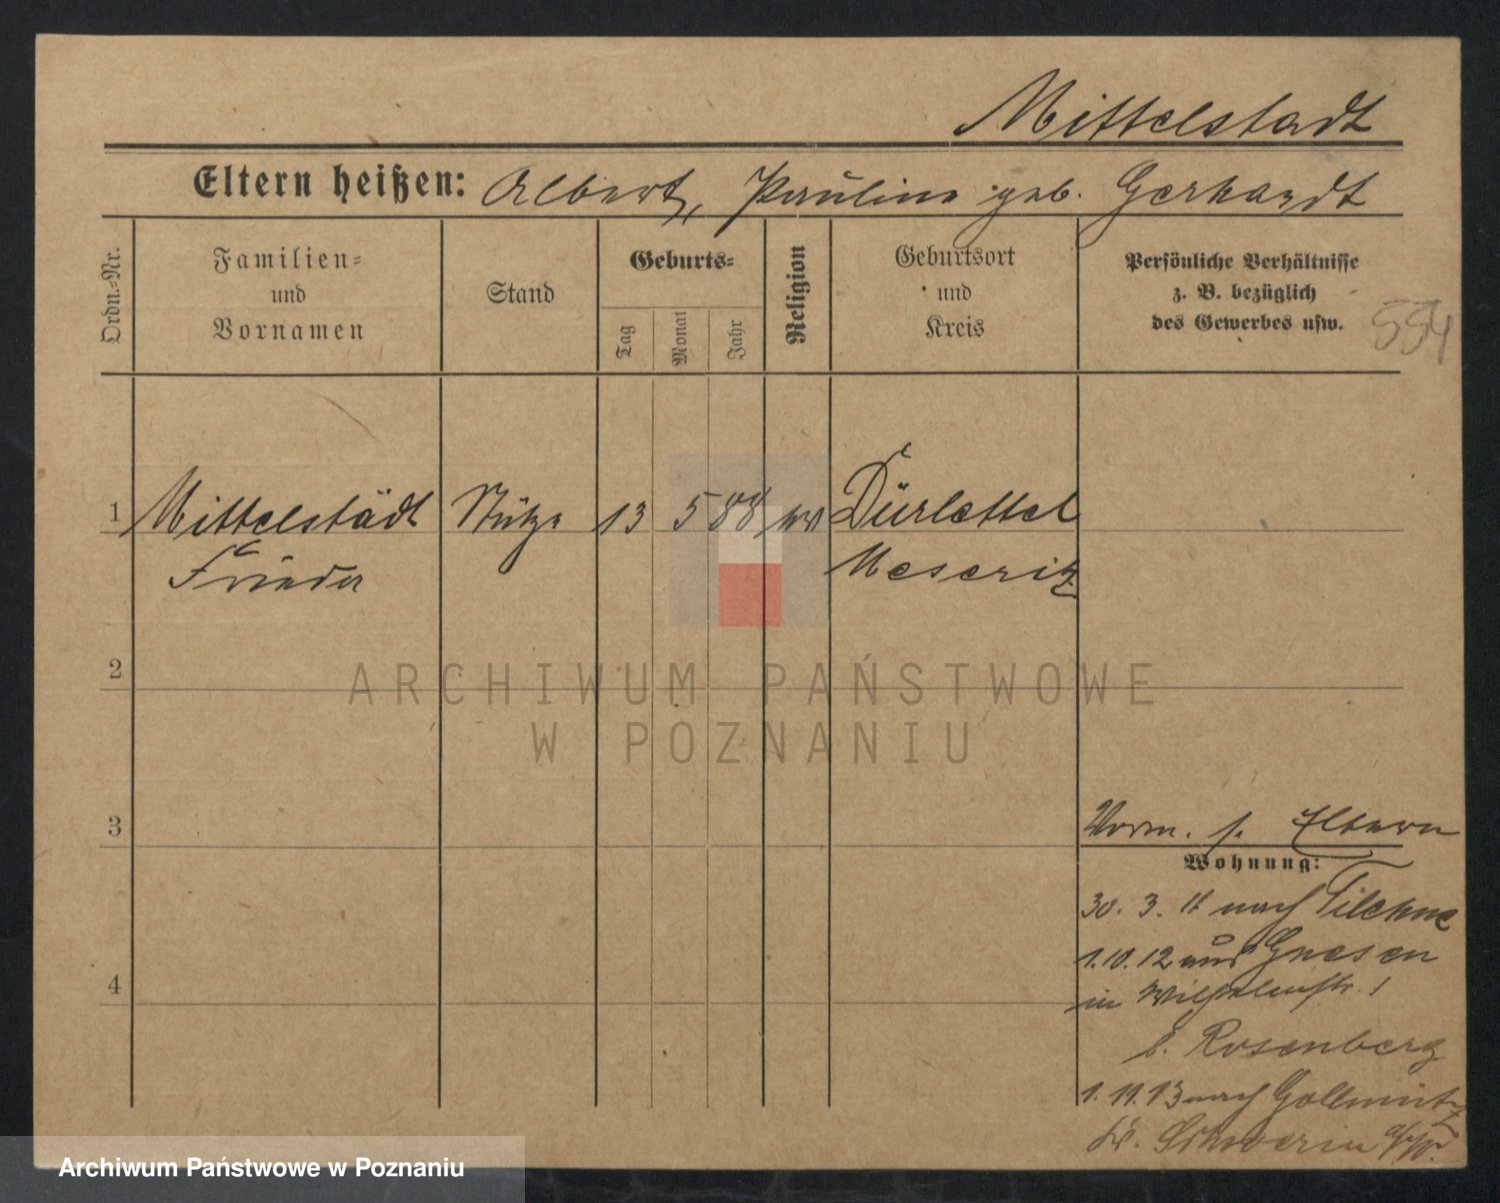 Mittelstädt
Eltern heißen: Albert, Pauline geb. Gerhardt
Ordn.-Nr.
Familien-
und
Vornamen
Stand
Geburts-
Tag
Monat
Jahr
Religion
Geburtsort
und
Kreis
Persönliche Verhältnisse
z. B. bezüglich
des Gewerbes usw.
554
1 Mittelstädt Stütze 13 5 88 ev Dürlettel
Frieda Meseritz
2
ARCHIWUM PAŃSTWOWE
W POZNANIU
3
Vorm. s. Eltern
Wohnung:
30. 3. 11 nach Filehne
1.10.12 aus Gnesen
4
in Wilhelmstr. 1
b. Rosenberg
1. 11. 13 nach Gollmütz
Kr. Schwerin
Archiwum Państwowe w Poznaniu